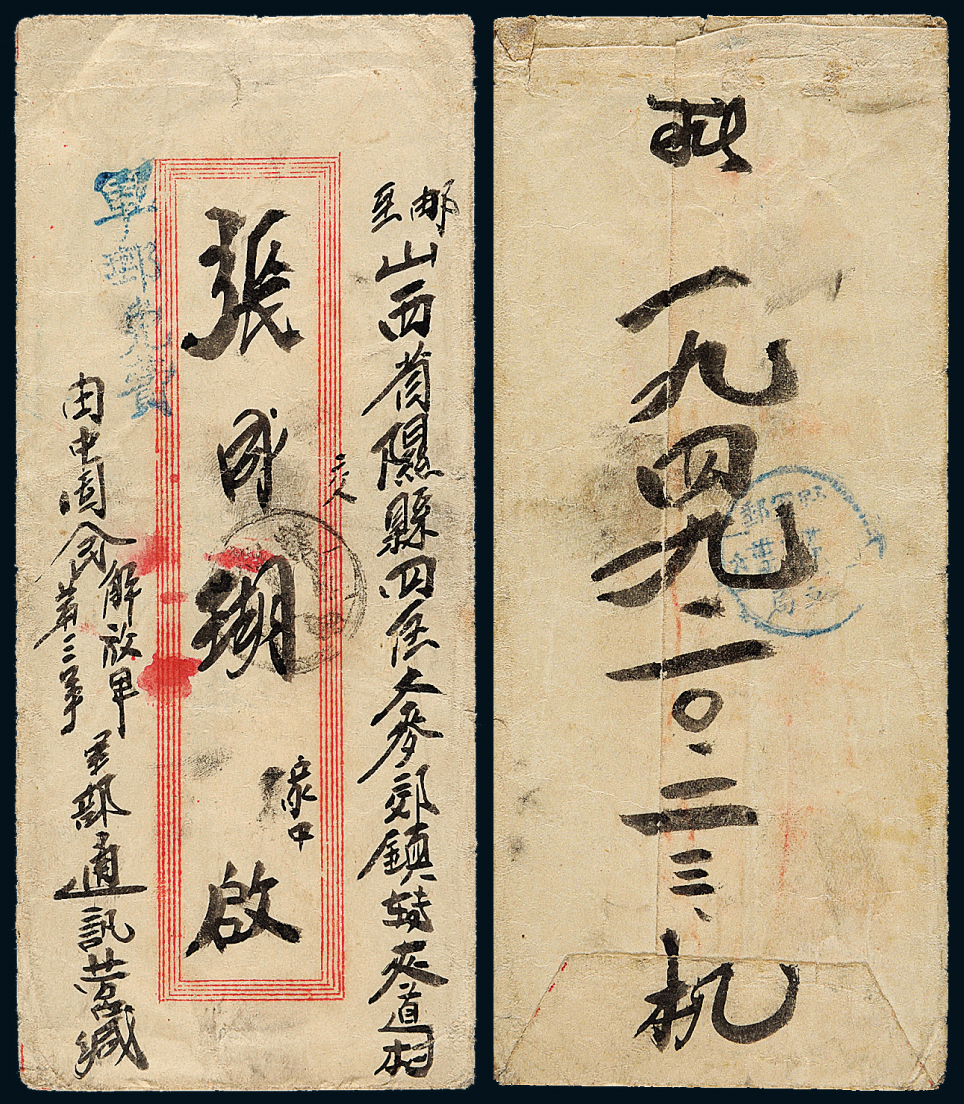 邮至
山西省隰縣四區大麥郊鎮轉夾道村
交
張成翔
家中
啟
軍郵免費
由中國人民解放軍第三軍軍部通訊營緘
一九四九.一〇.二三、
机